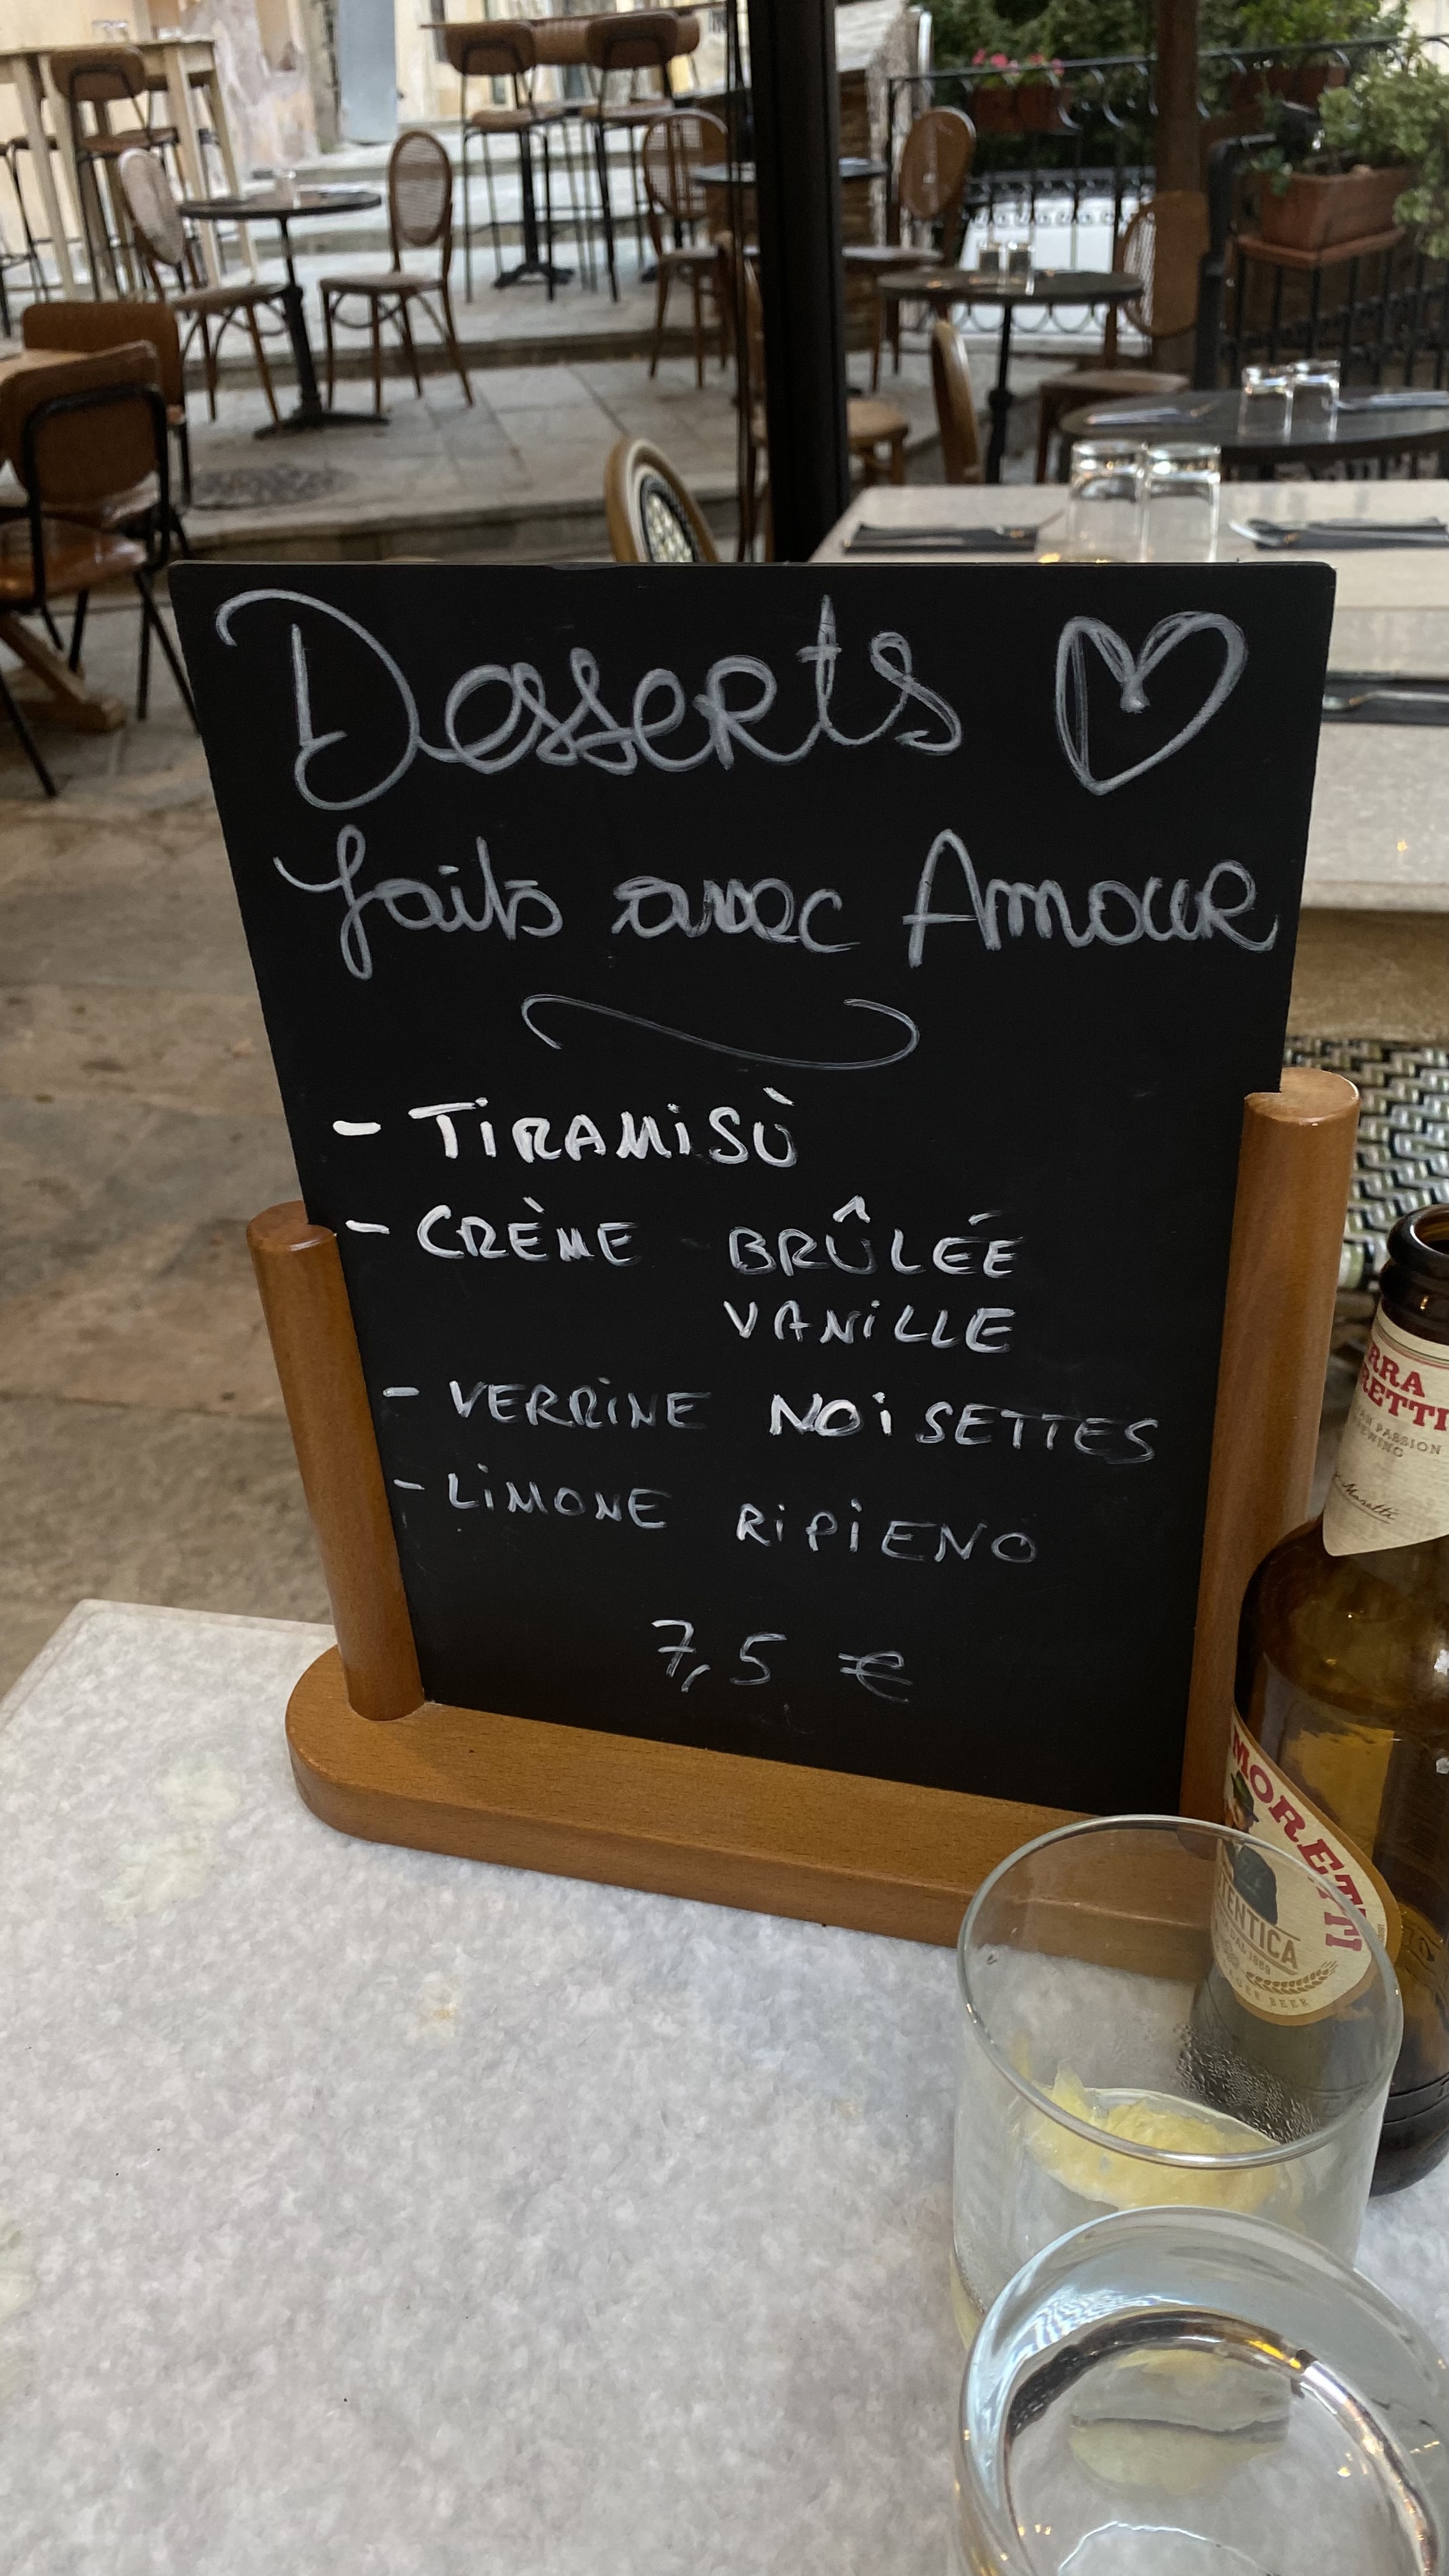 Desserts
faits avec Amour
- TIRAMISÙ
- CRÈME BRÛLÉE
VANILLE
- VERRINE NOISETTES
- LIMONE RIPIENO
7,5 €
RRA
RETTI
PASSION
EWING
Moretti
MORETTI
TENTICA
BEER